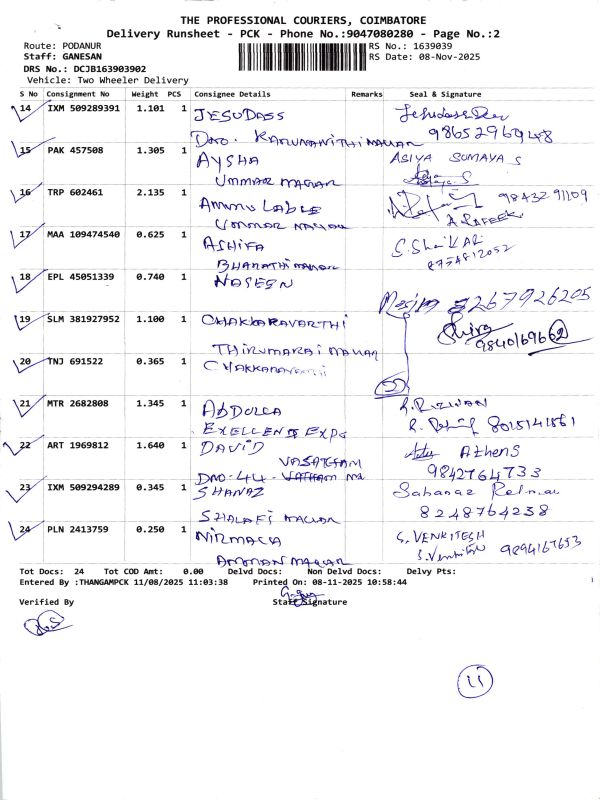 THE PROFESSIONAL COURIERS, COIMBATORE
Delivery Runsheet - PCK - Phone No.:9047080280 - Page No.:2
Route: PODANUR
RS No.: 1639039
Staff: GANESAN
RS Date: 08-Nov-2025
DRS No.: DCJB163903902
Vehicle: Two Wheeler Delivery
S No Consignment No Weight PCS Consignee Details Remarks Seal & Signature
14 IXM 509289391 1.101 1 JESUDASS
DMO. KARUNANITHI NAGAR
15 PAK 457508 1.305 1 AYSHA ASIYA SUMAYA S
UMMAR NAGAR
16 TRP 602461 2.135 1 AMMU LABLE 9843291109
UMMAR NAGAR A.RAFEEK
17 MAA 109474540 0.625 1 ASHIFA S.Shaikar
BHARATHI NAGAR 8754812052
18 EPL 45051339 0.740 1 NASEEN
19 SLM 381927952 1.100 1 CHAKKARAVARTHI
THIRUMARAI NAGAR
20 TNJ 691522 0.365 1 CHAKKARAVARTHI
21 MTR 2682808 1.345 1 ABDULLA R.RIZWAN
EXELLENTS EXPO
22 ART 1969812 1.640 1 DAVID Athens
VASATHAM
DNO-44- 9842764733
23 IXM 509294289 0.345 1 SHANAZ
SHALAFI NAGAR 8248764238
24 PLN 2413759 0.250 1 NIRMALA S. VENKITESH
AMMAN NAGAR 9894167653
Tot Docs: 24 Tot COD Amt: 0.00 Delvd Docs: Non Delvd Docs: Delvy Pts:
Entered By :THANGAMPCK 11/08/2025 11:03:38 Printed On: 08-11-2025 10:58:44
Verified By Staff Signature
11